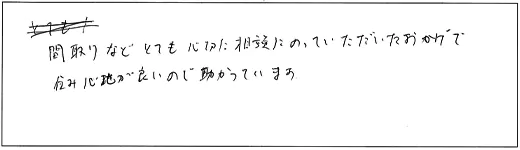 間取りなどとても心切に相談にのっていただいたおかげで
住み心地が良いので助かっています